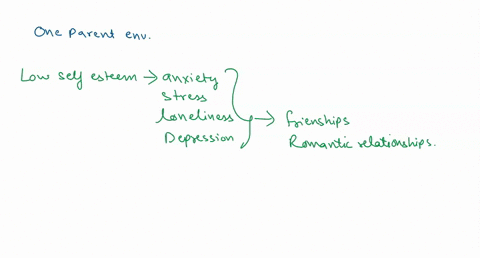 One parent env.
Low self esteem → anxiety
stress
loneliness → frienships
Depression
Romantic relationships.